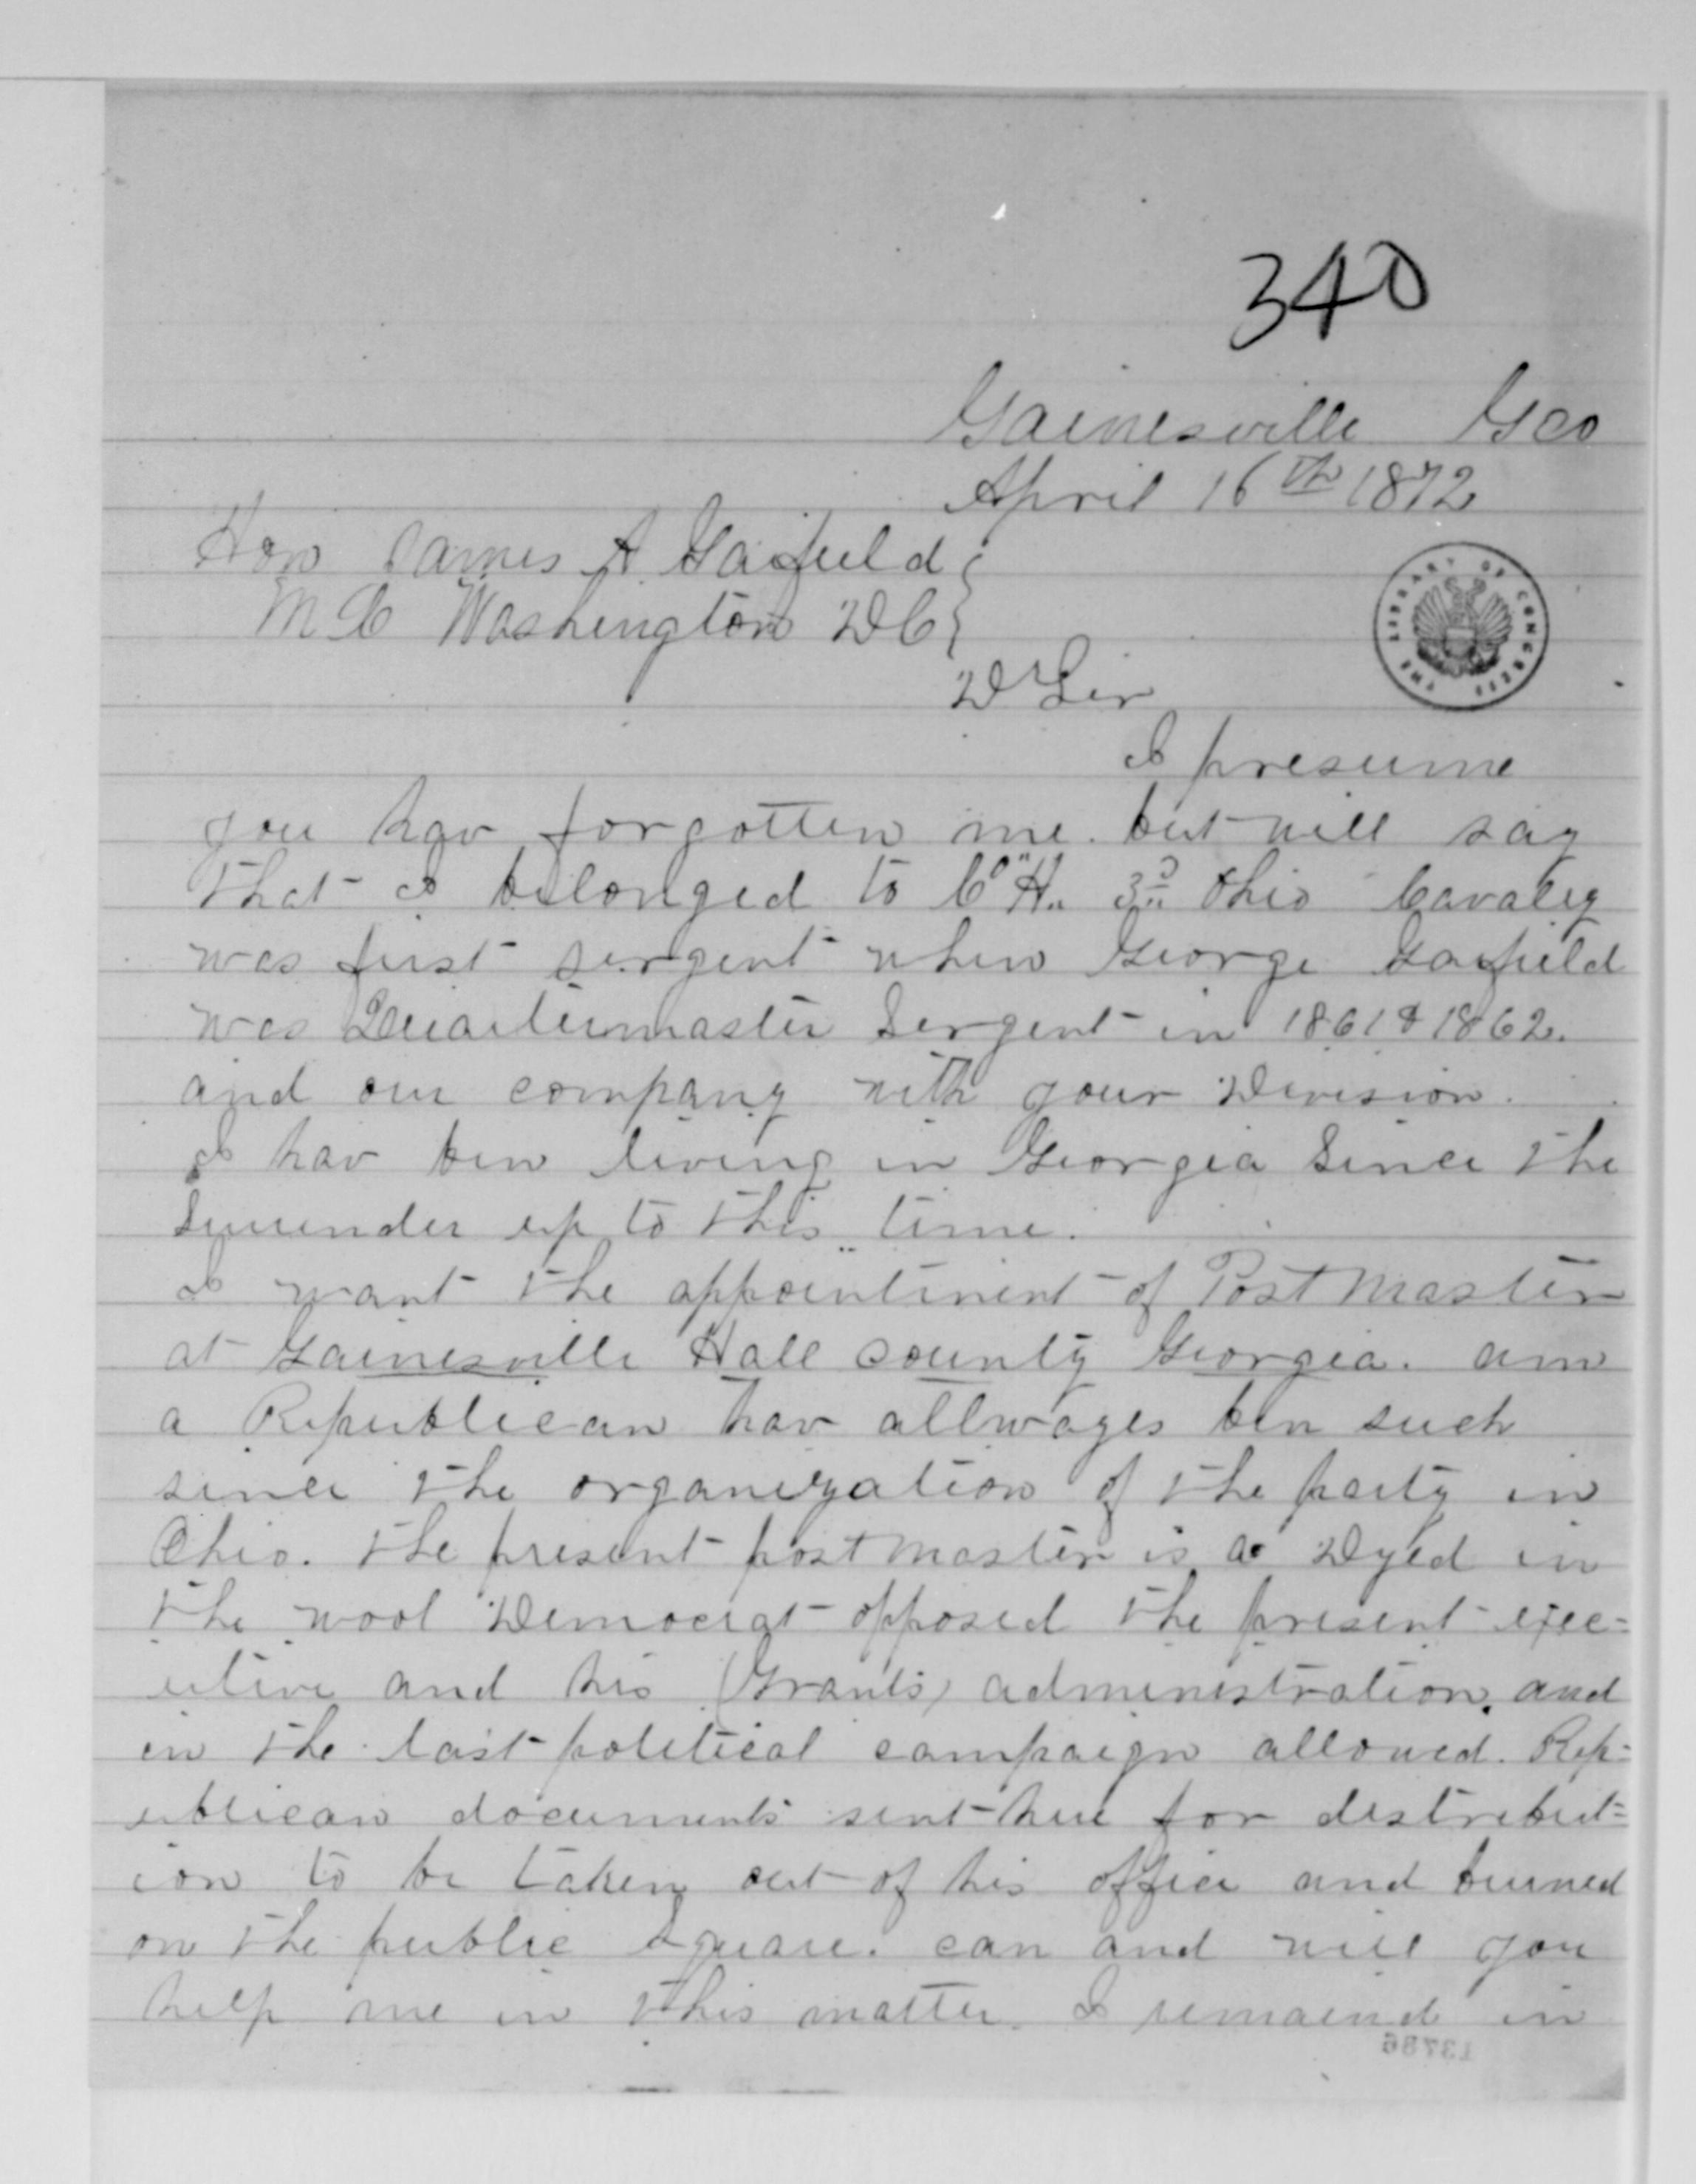 340
Gainesville Geo
April 16th 1872
Hon James A Garfield
M C Washington D C
D Sir
I presume
you hav forgotten me. but will say
that I belonged to Co "H" 3d Ohio Cavalry
was first sergent when George Garfield
was Quartermaster Sergent in 1861 & 1862.
and our company with your Division.
I hav ben living in Georgia Since the
Surrender up to this time.
I want the appointment of Post Master
at Gainesville Hall county Georgia. am
a Republican hav allways ben such
since the organization of the party in
Ohio. the present post master is a Dyed in
the wool Democrat opposed the present exec=
utive and his (Grants) administration, and
in the last political campaign allowed Rep=
ublican documents sent here for distribut=
ion to be taken out of his office and burned
on the public Square. can and will you
help me in this matter. I remaind in
13786
THE LIBRARY OF CONGRESS